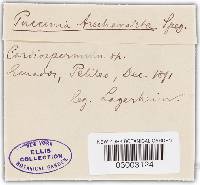 Puccinia Arechavaletae Speg.
Cardiospermum sp.
Ecuador, Pelileo, Dec. 1891
leg. Lagerheim.
NEW YORK
ELLIS
COLLECTION
BOTANICAL GARDEN
NEW YORK BOTANICAL GARDEN